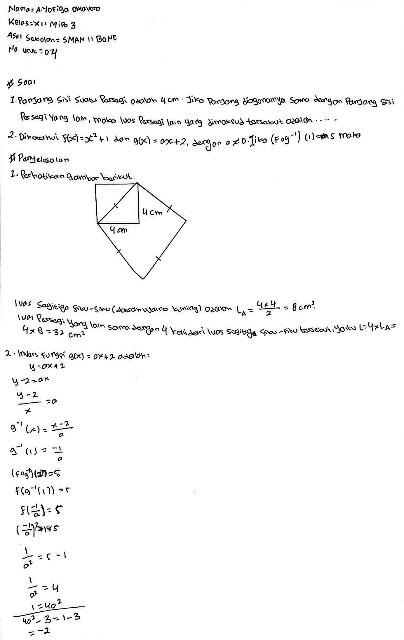 Nama = A.Yofiga
Kelas = XII MIPA 3
Asal Sekolah = SMAN 11 BONE
No urut = 04
# Soal
1. Panjang sisi suatu Persegi adalah 4 cm. Jika Panjang diagonalnya sama dengan Panjang sisi
Persegi Yang lain, maka luas Persegi lain yang dimaksud tersebut adalah .....
2. Diketahui f(x) = x² + 1 dan g(x) = ax + 2, dengan a ≠ 0. Jika (fog⁻¹) (1) = 5 maka
# Penyelesaian
1. Perhatikan gambar berikut.
4 cm
4 cm
luas segitiga siku-siku ( warna kuning) adalah L_A = 4 x 4 / 2 = 8 cm².
luas Persegi Yang lain sama dengan 4 kali dari luas segitiga siku-siku tersebut. Yaitu L = 4 x L_A =
4 x 8 = 32 cm²
2. Invers fungsi g(x) = ax + 2 adalah:
y = ax + 2
y - 2 = ax
y - 2 / x = a
g⁻¹ (x) = x - 2 / a
g⁻¹ (1) = -1 / a
(fog⁻¹)(1) = 5
f(g⁻¹(1)) = 5
f(-1/a) = 5
(-1/a)² + 1 = 5
1 / a² = 5 - 1
1 / a² = 4
1 = 4a²
4a² - 3 = 1 - 3
= -2